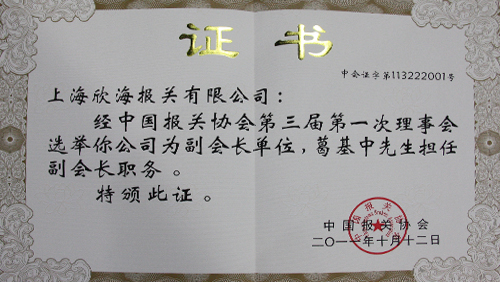 证书
中会证字第113222001号
上海欣海报关有限公司：
经中国报关协会第三届第一次理事会
选举你公司为副会长单位，葛基中先生担任
副会长职务。
特颁此证。
中国报关协会
二〇一一年十月十二日